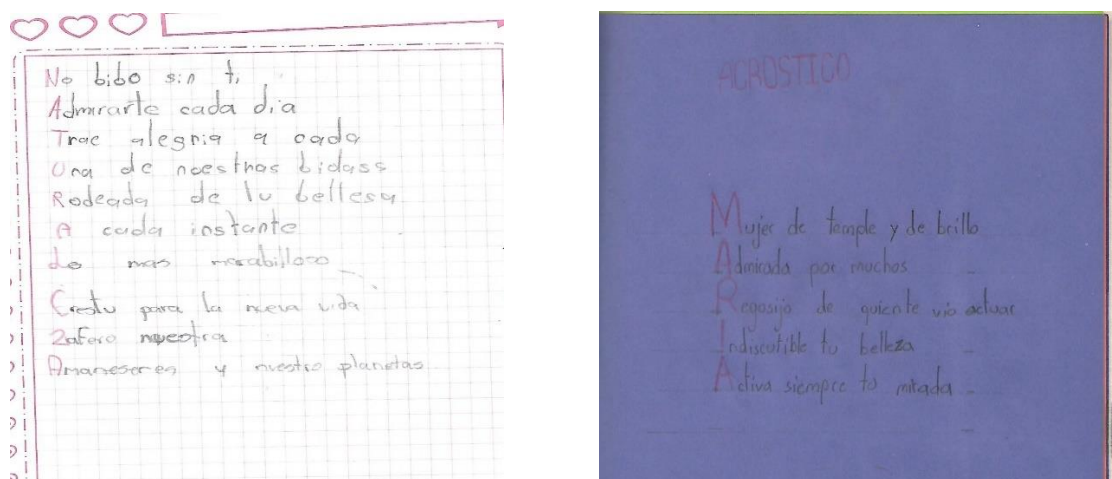 No bibo sin ti
Admirarte cada dia
Trae alegria a cada
Una de noestras bidass
Rodeada de tu bellesa
A cada instante
Lo mas marabilloso
Crestu para la nueva vida
Zafero nuestra
Amaneseres y nuestro planetas
ACROSTICO
Mujer de temple y de brillo
Admirada por muchos
Regosijo de quiente vio actuar
Indiscutible tu belleza
Activa siempre tu mirada